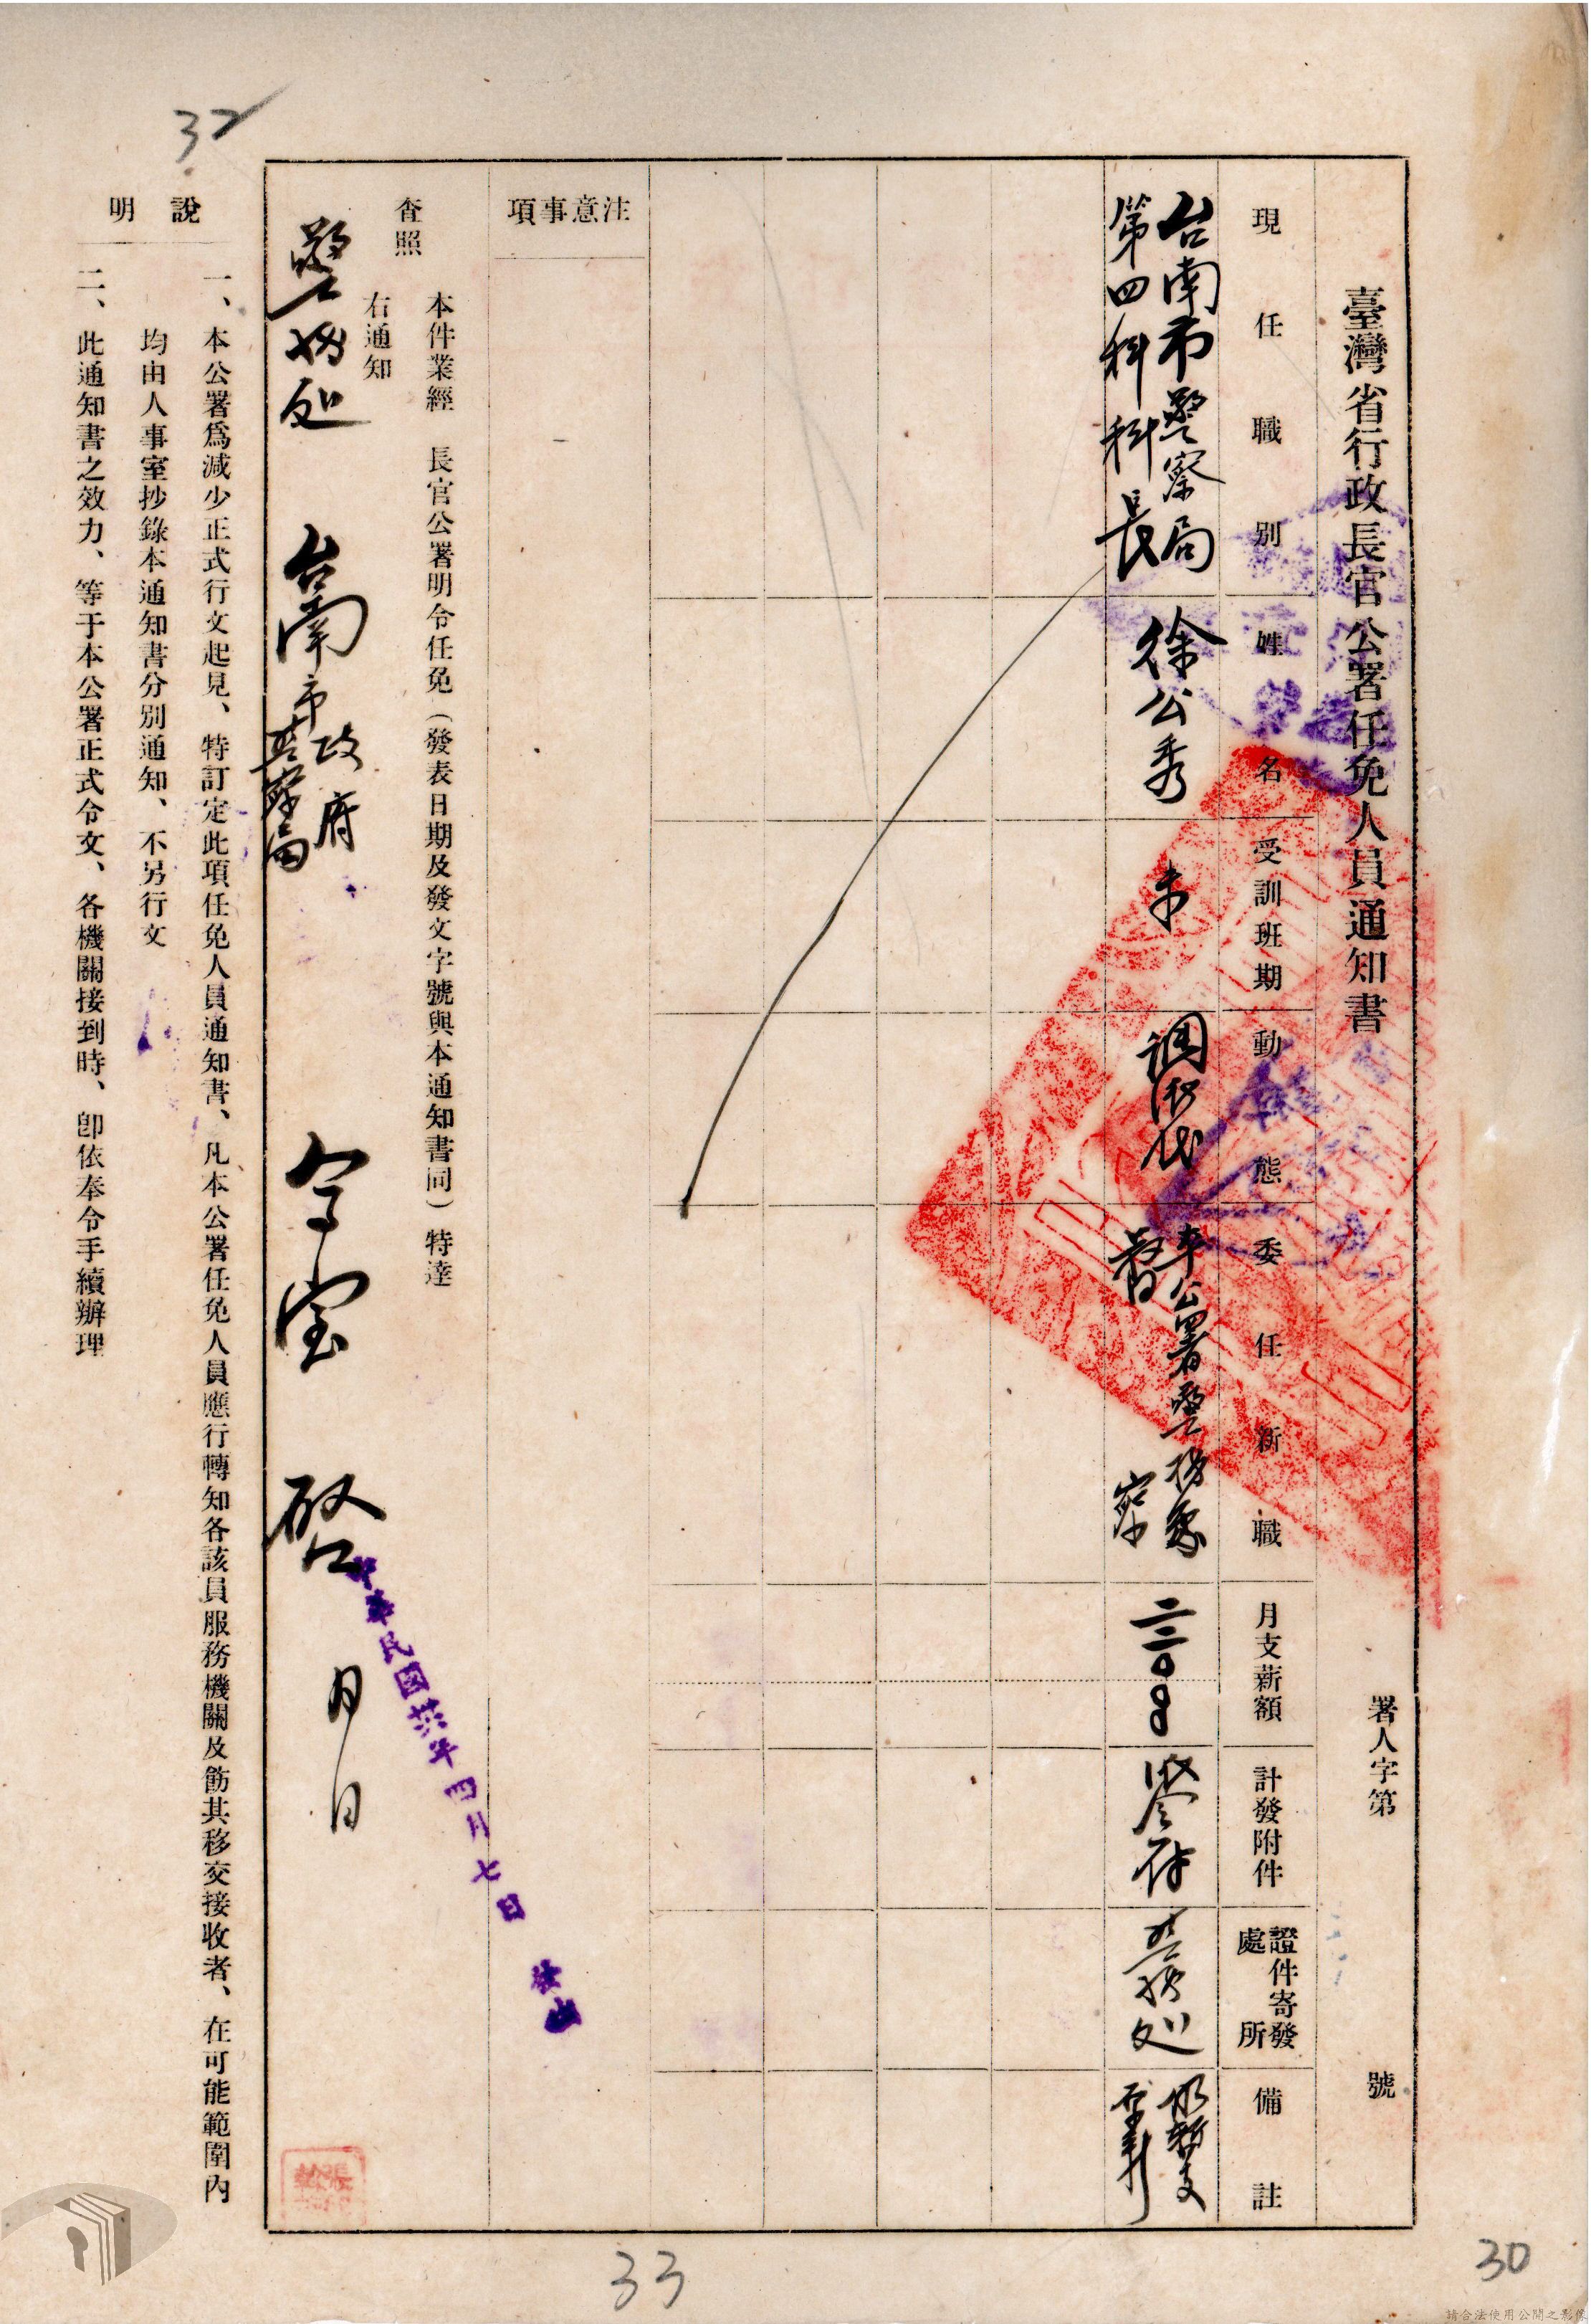 臺灣省行政長官公署任免人員通知書
署人字第 號
現任職別
姓名
受訓班期
動態
委任新職
月支薪額
計發附件
證件寄發處所
備註
台南市警察局
第四科科長
徐公秀
未
調派代
本公署警務處
督察
二二〇
警務處
仍暫支
注意事項
本件業經 長官公署明令任免（發表日期及發文字號與本通知書同）特達
查照
右通知
警務處
台南市政府
警察局
人事室 啓
月 日
中華民國卅六年四月七日
發出
說明
一、本公署爲減少正式行文起見、特訂定此項任免人員通知書、凡本公署任免人員應行轉知各該員服務機關及飭其移交接收者、在可能範圍內
均由人事室抄錄本通知書分別通知、不另行文
二、此通知書之效力、等于本公署正式令文、各機關接到時、卽依奉令手續辦理
32
33
30
請合法使用公開之影像